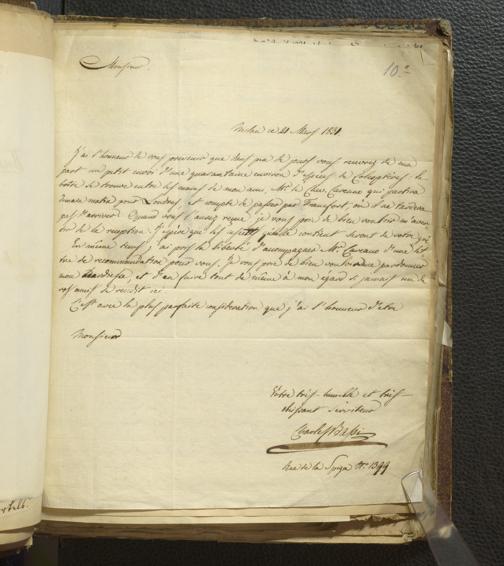 Monsieur.
10.
Milan ce 21 Mars 1831
J'ai l'honneur de vous prévenir que sous peu de jours vous recevrez de ma
part un petit envoi d'une quarantaine environ d'espèces de Coléoptères: la
boîte se trouve entre les mains de mon ami Mr. le Chev. Cavana qui partira
demain matin pour Londres, et compte de passer par Francfort, où il ne tardera
pas d'arriver. Quand vous l'aurez reçue, je vous prie de bien vouloir m'aviser
de la reception. J'espère que les espèces qu'elle contient seront de votre
En même tems, j'ai pris la liberté d'accompagner Mr. Cavana d'une let-
tre de recommandation pour vous. Je vous prie de bien vouloir me pardonner
mon hardiesse, et d'en faire tout de même à mon égard si jamais un de
vos amis se rendit ici.
C'est avec la plus parfaite considération que j'ai l'honneur d'etre
Monsieur
Votre très-humble et très-
obéissant serviteur
Charles Bassi
Rue de la Spiga Nr. 1399